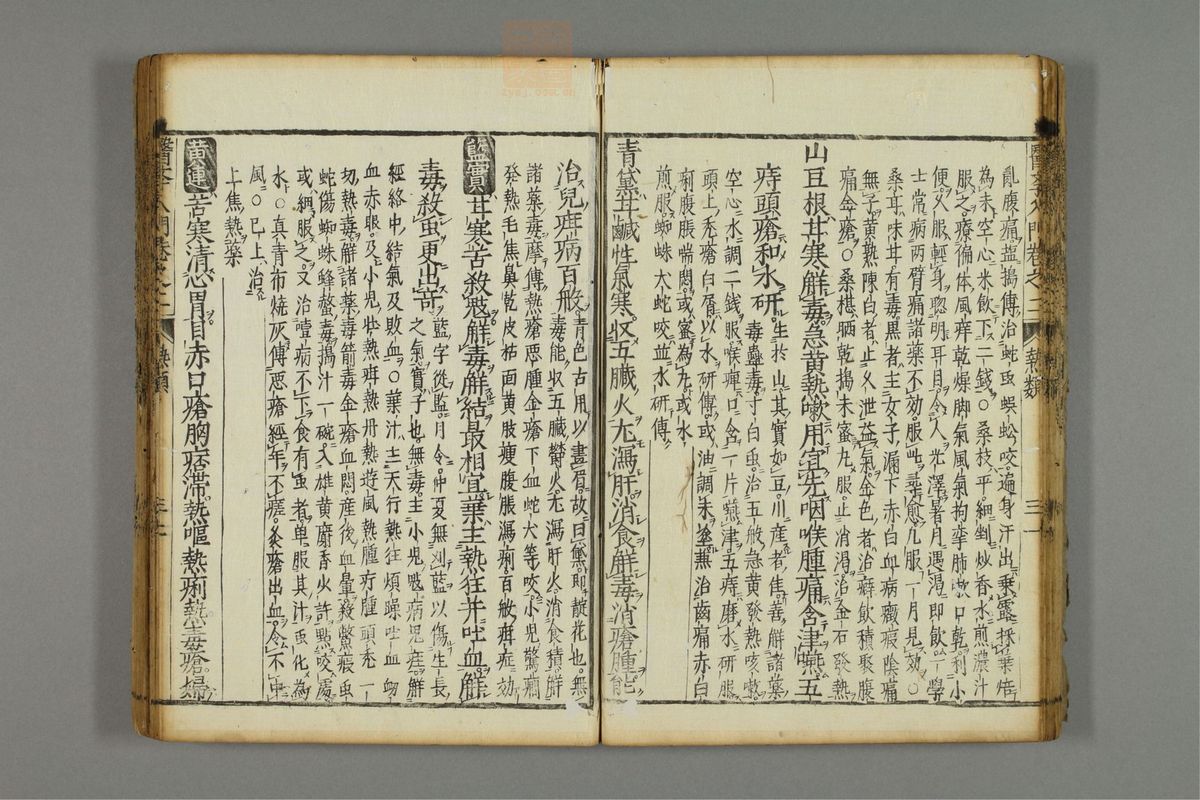 亂腹痛盐搗傅治蛇虫蜈蚣咬遍身汗出乗露採葉焙
為末空心米飲下二錢○桑枝平細剉炒香水煎濃汁
服之療偏体風痒乾燥脚氣風氣拘挛肺嗽口乾利小
便久服輕身聦明耳目令人光澤暑月遇渴即飲一學
士常病两臂痛諸藥不効服此尋愈凡服一月見効○
桑耳味甘有毒黒者主女子漏下赤白血病癥瘕陰痛
無子黄熟陳白者止久泄益氣金色者治癖飲積聚腹
痛金瘡○桑椹晒乾搗末蜜丸服止消渴治金石發熱
山豆根甘寒觧毒急黄熱嗽用宜先咽喉腫痛含津嚥五
痔頭瘡和水研
生於山其實如豆川産者佳善觧諸藥
毒蠱毒寸白虫治五般急黄發熱咳嗽
空心水調二錢服喉痺口含一片嚥津五痔磨水研服
頭上禿瘡白屑以水研傅或油調末塗無治齒痛赤白
痢腹脹喘悶或蜜為丸或水
煎服蜘蛛犬蛇咬並水研傅
青黛甘鹹性氣寒収五臓火尢瀉肝消食觧毒消瘡腫能
治兒疳病百般
青色古用以畫眉故曰黛即靛花也無
毒能収五臓欝火尢瀉肝火消食積觧
諸藥毒摩傅熱瘡悪腫金瘡下血蛇犬等咬小兒驚癇
發熱毛焦鼻乾皮枯面黄肢瘦腹脹瀉痢百般疳症効
藍實甘寒苦殺䰡觧毒觧結最相宜葉主熱狂并吐血觧
毒殺虫更出竒
藍字從監月令仲夏無刈藍以傷生長
之氣實子也無毒主小兒䰡病兒疰觧
經絡中結氣及敗血○葉汁主天行熱狂煩躁吐血衂
血赤服及小兒壮熱疳熱丹熱遊風熱腫疔腫頭禿一
切熱毒觧諸藥毒箭毒金瘡血悶産後血暈殺鱉瘕虫
蛇傷蜘蛛蜂螫毒搗汁一碗入雄黄麝香火許點咬處
或細服之又治噎病不下食有虫者单服其汁虫化為
水○真青布焼灰傅悪瘡經年不瘥灸瘡出血令不中
風○已上治
上焦熱藥
黄連苦寒清心胃目赤口瘡胸痞滞熱嘔熱痢熱毒瘡婦